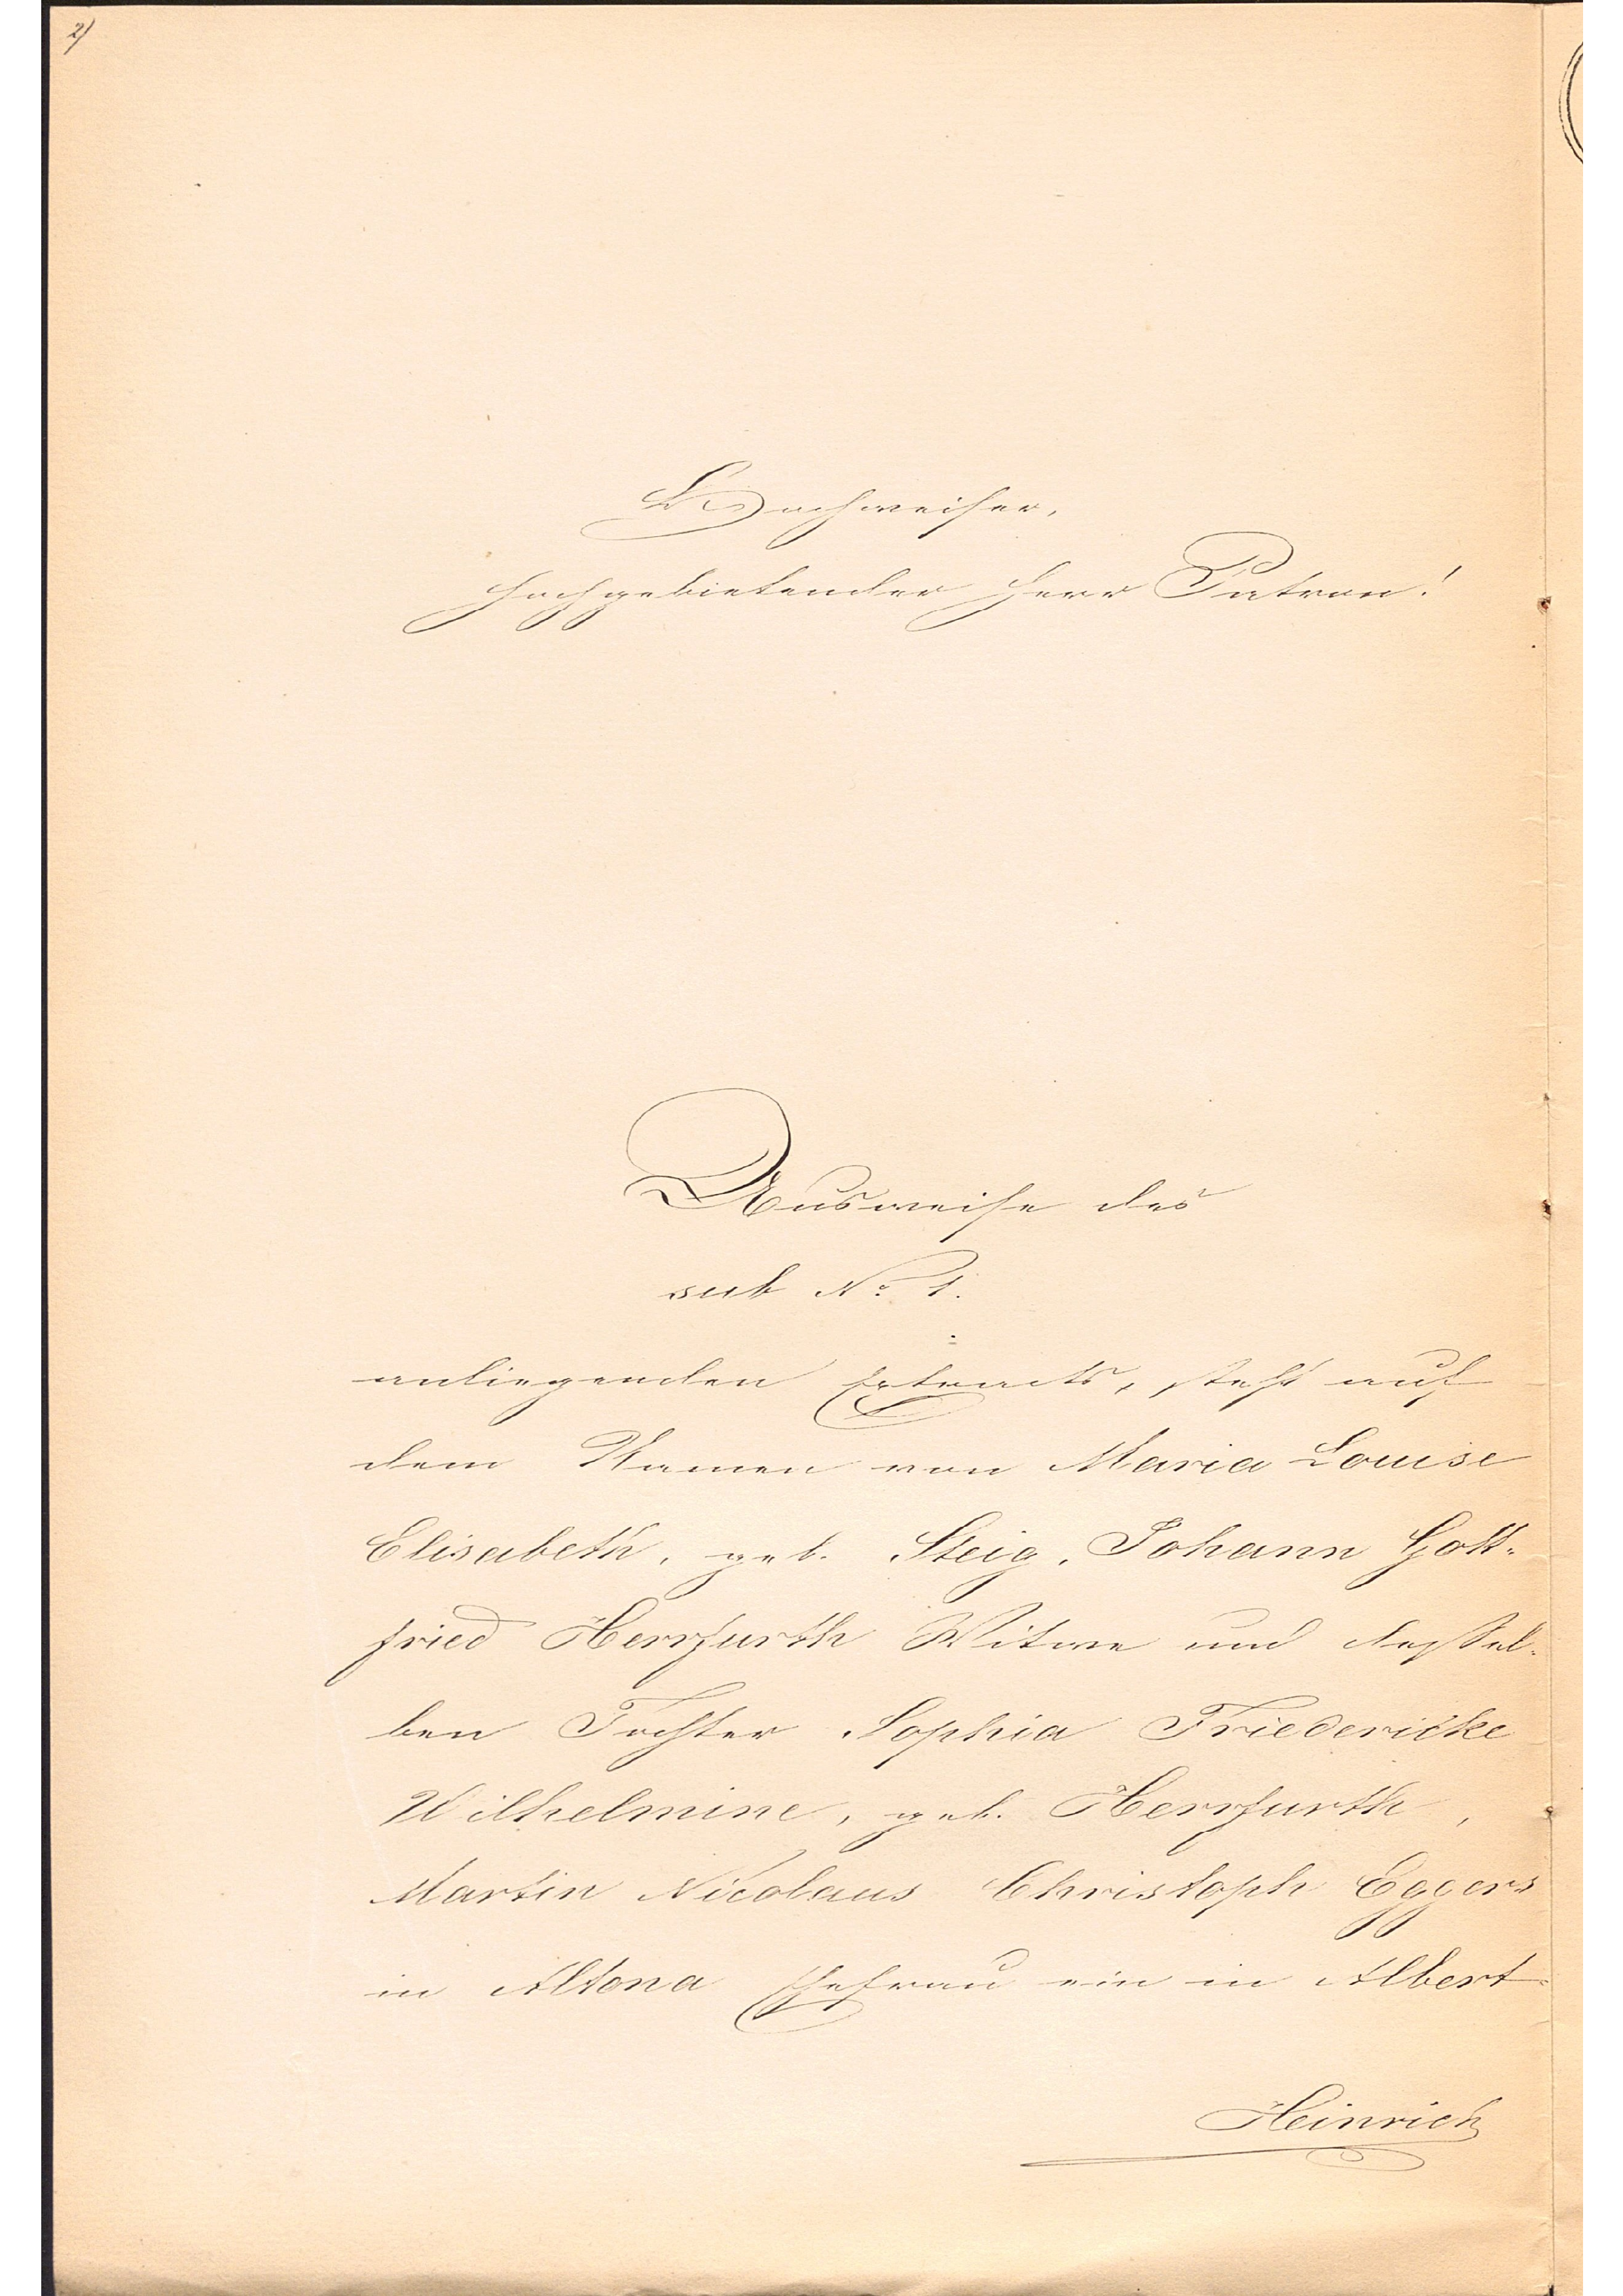 2)
Hochweiser,
hochgebietender Herr Patron!
Ausweise des
sub No. 1.
anliegenden Extracts, steht auf
dem Namen von Maria Louise
Elisabeth, geb. Steig, Johann Gott-
fried Herrfurth Witwe und desssel-
ben Tochter Sophia Friedericke
Wilhelmine, geb. Herrfurth,
Martin Nicolaus Christoph Eggers
in Altona Ehefrau ein in Albert-
Heinrich